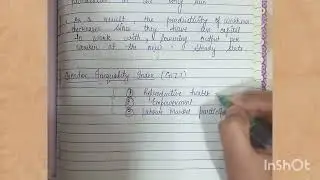 As a result the productivity of workers
decreases since they have no
to work with, lowering output per
worker at the new steady state
Gender Inequality Index (GII)
① Reproductive health
② Empowerment
③ Labour Market
InShOt